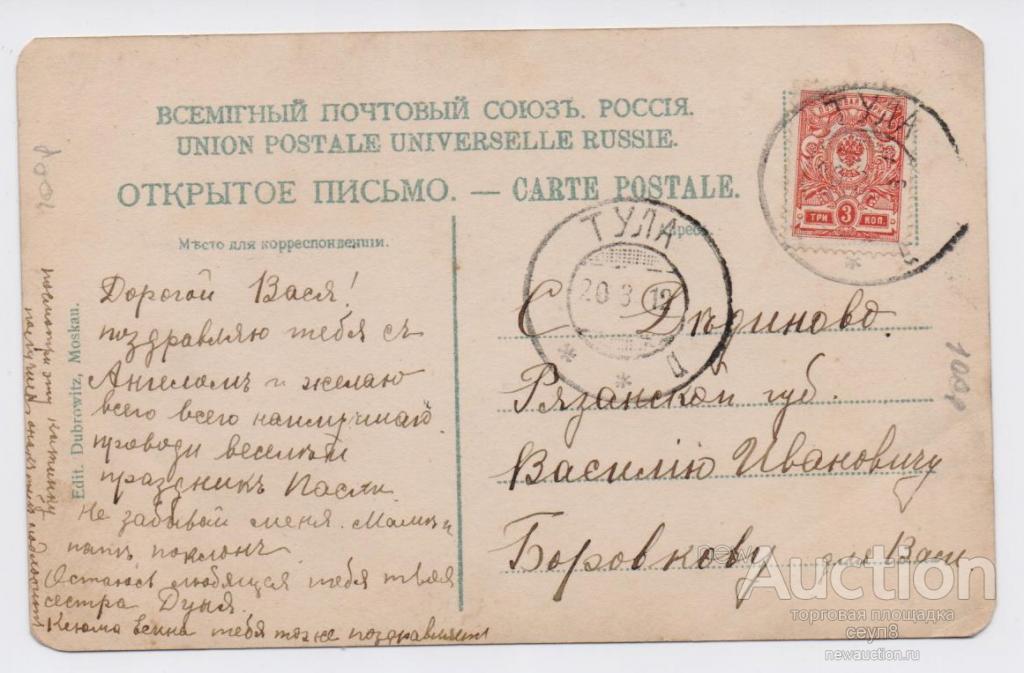 ВСЕМІРНЫЙ ПОЧТОВЫЙ СОЮЗЪ. РОССІЯ.
UNION POSTALE UNIVERSELLE RUSSIE.
ОТКРЫТОЕ ПИСЬМО. — CARTE POSTALE.
Мѣсто для корреспонденціи.
Адресъ
ТУЛА
20 3 12
Ц
ТУЛА
Ц
ТРИ 3 КОП.
Дорогой Вася!
поздравляю тебя съ
Ангеломъ и желаю
всего всего наилучшаго
проводи веселѣй
праздникъ Пасхи.
Не забывай меня. Мамѣ и
папѣ поклонъ
Остаюсь любящая тебя твоя
сестра Дуня.
тебя тоже поздравляетъ
посмотри эту картинку
Edit. Dubrowitz, Moskau.
С. Дѣдиново.
Рязанской губ.
Василію Ивановичу
Боровкову для Васи
100р
100р
newAuction
торговая площадка
сеул8
newauction.ru